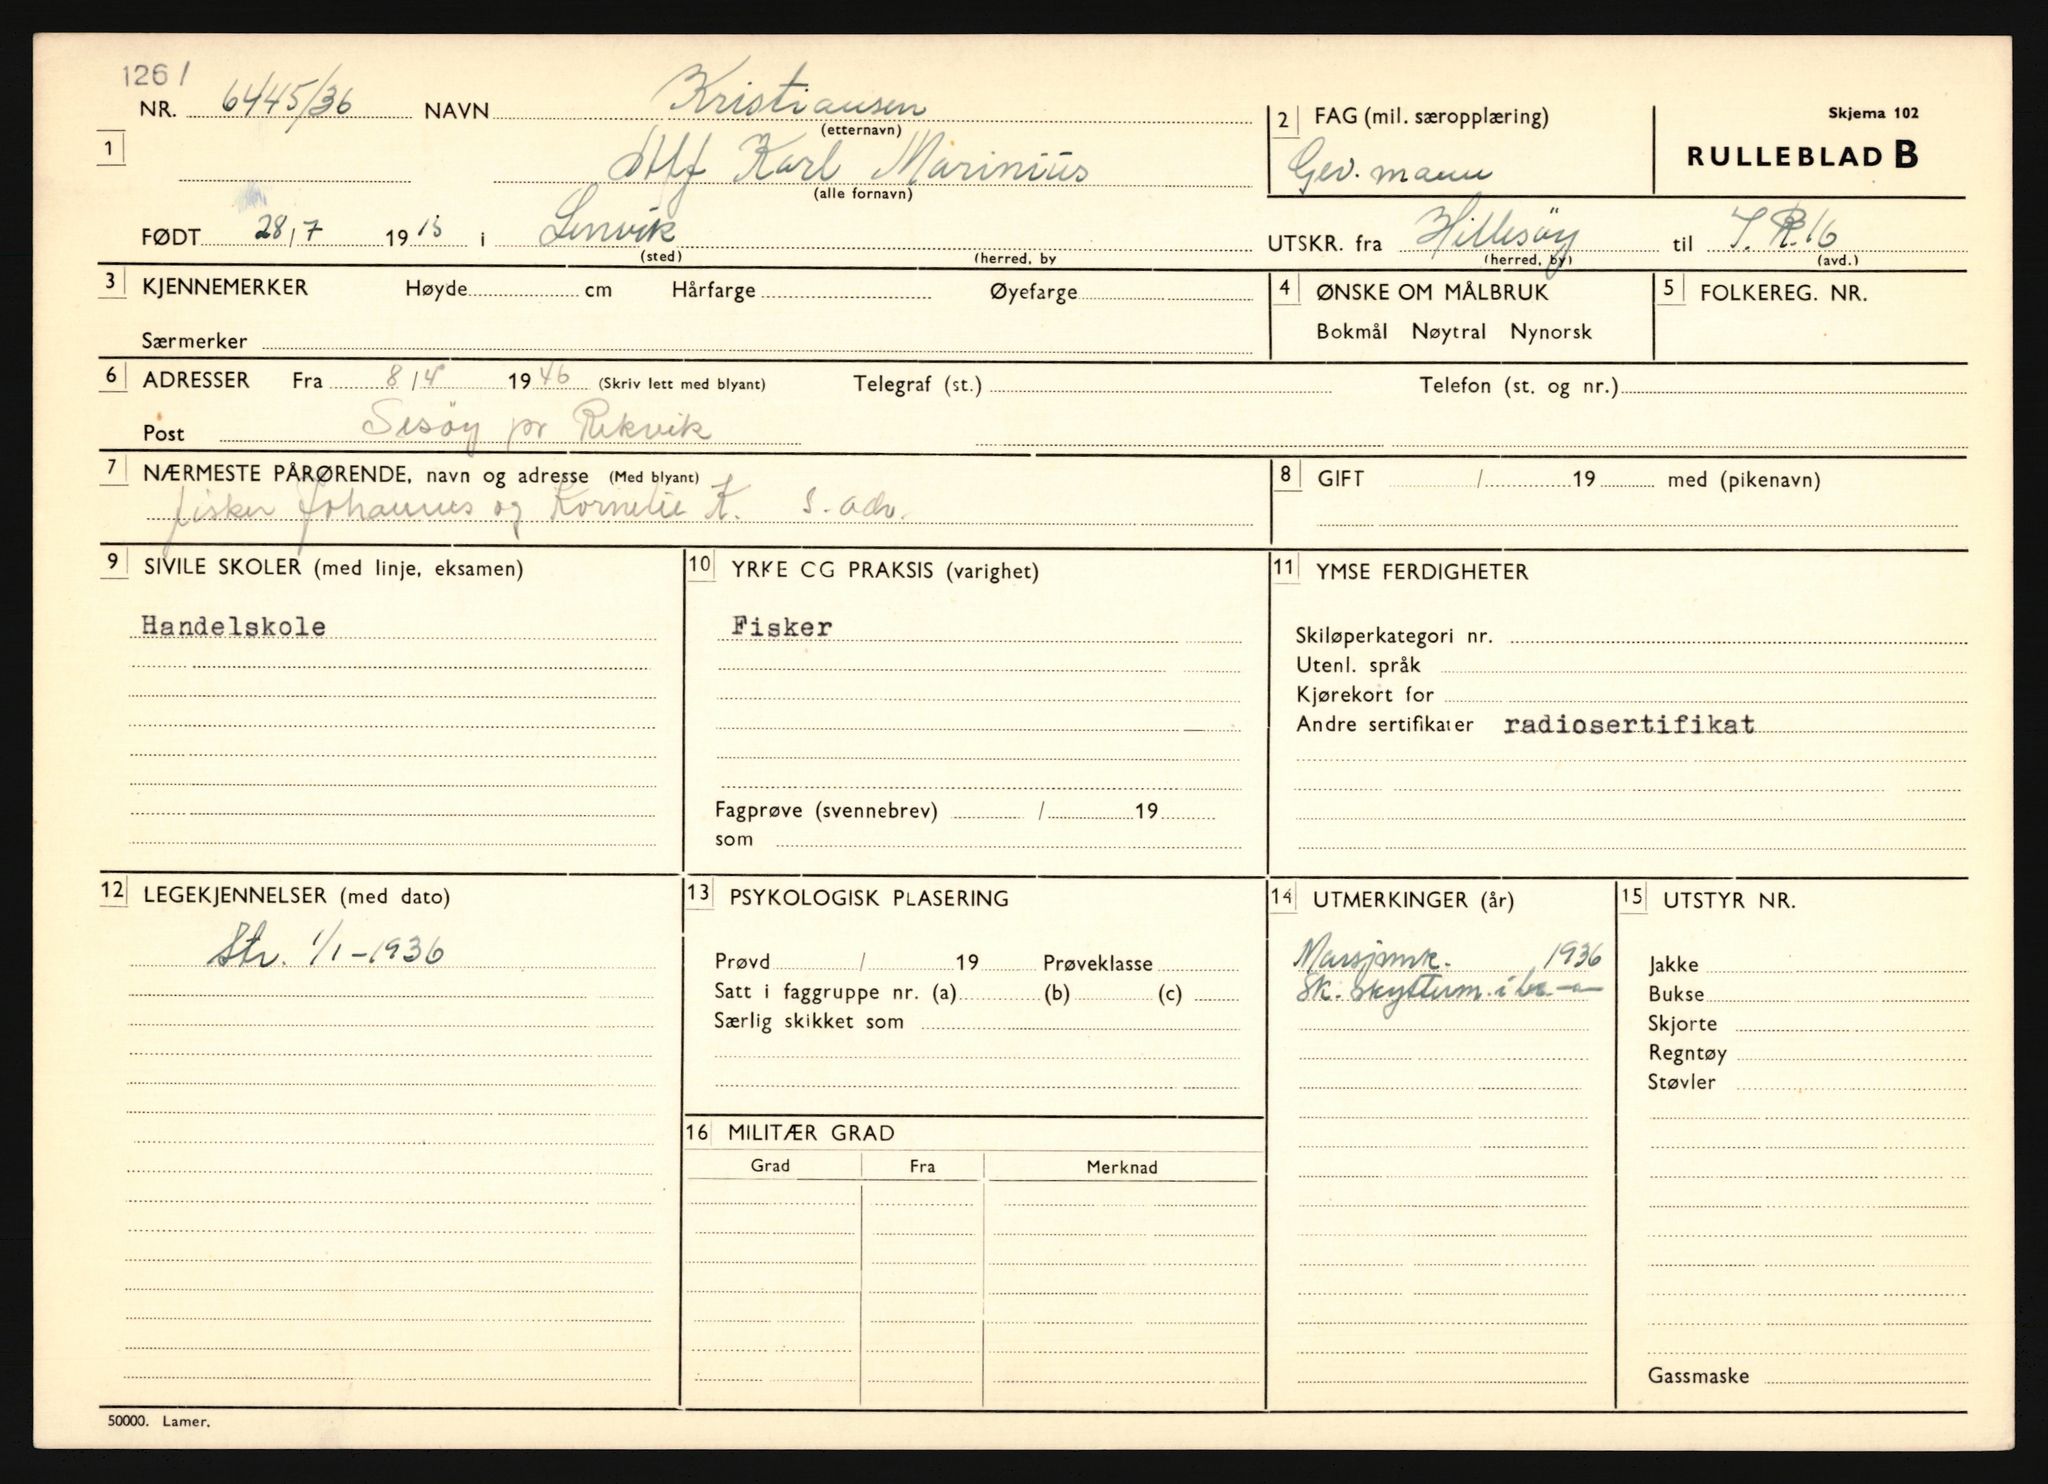 1261
NR. 6445/36 NAVN Kristiansen
(etternavn)
1
Alf Karl Marinius
(alle fornavn)
FØDT 28/7 1915 i Lenvik
(sted) (herred, by
2 FAG (mil. særopplæring)
Gev. mann
Skjema 102
RULLEBLAD B
UTSKR. fra Hillesøy til I.R.16
(herred, by) (avd.)
3 KJENNEMERKER Høyde cm Hårfarge Øyefarge
Særmerker
4 ØNSKE OM MÅLBRUK
Bokmål Nøytral Nynorsk
5 FOLKEREG. NR.
6 ADRESSER Fra 8/4 1946 (Skriv lett med blyant) Telegraf (st.) Telefon (st. og nr.)
Post Sesøy pr Rekvik
7 NÆRMESTE PÅRØRENDE, navn og adresse (Med blyant)
fisker Johannes og Kornelie K. s. adr.
8 GIFT / 19 med (pikenavn)
9 SIVILE SKOLER (med linje, eksamen)
Handelskole
10 YRKE CG PRAKSIS (varighet)
Fisker
Fagprøve (svennebrev) / 19
som
11 YMSE FERDIGHETER
Skiløperkategori nr.
Utenl. språk
Kjørekort for
Andre sertifikater radiosertifikat
12 LEGEKJENNELSER (med dato)
Str. 1/1-1936
13 PSYKOLOGISK PLASERING
Prøvd / 19 Prøveklasse
Satt i faggruppe nr. (a) (b) (c)
Særlig skikket som
14 UTMERKINGER (år)
Marsjmrk. 1936
Sk. skytterm. i br. -"-
15 UTSTYR NR.
Jakke
Bukse
Skjorte
Regntøy
Støvler
Gassmaske
16 MILITÆR GRAD
Grad Fra Merknad
50000. Lamer.